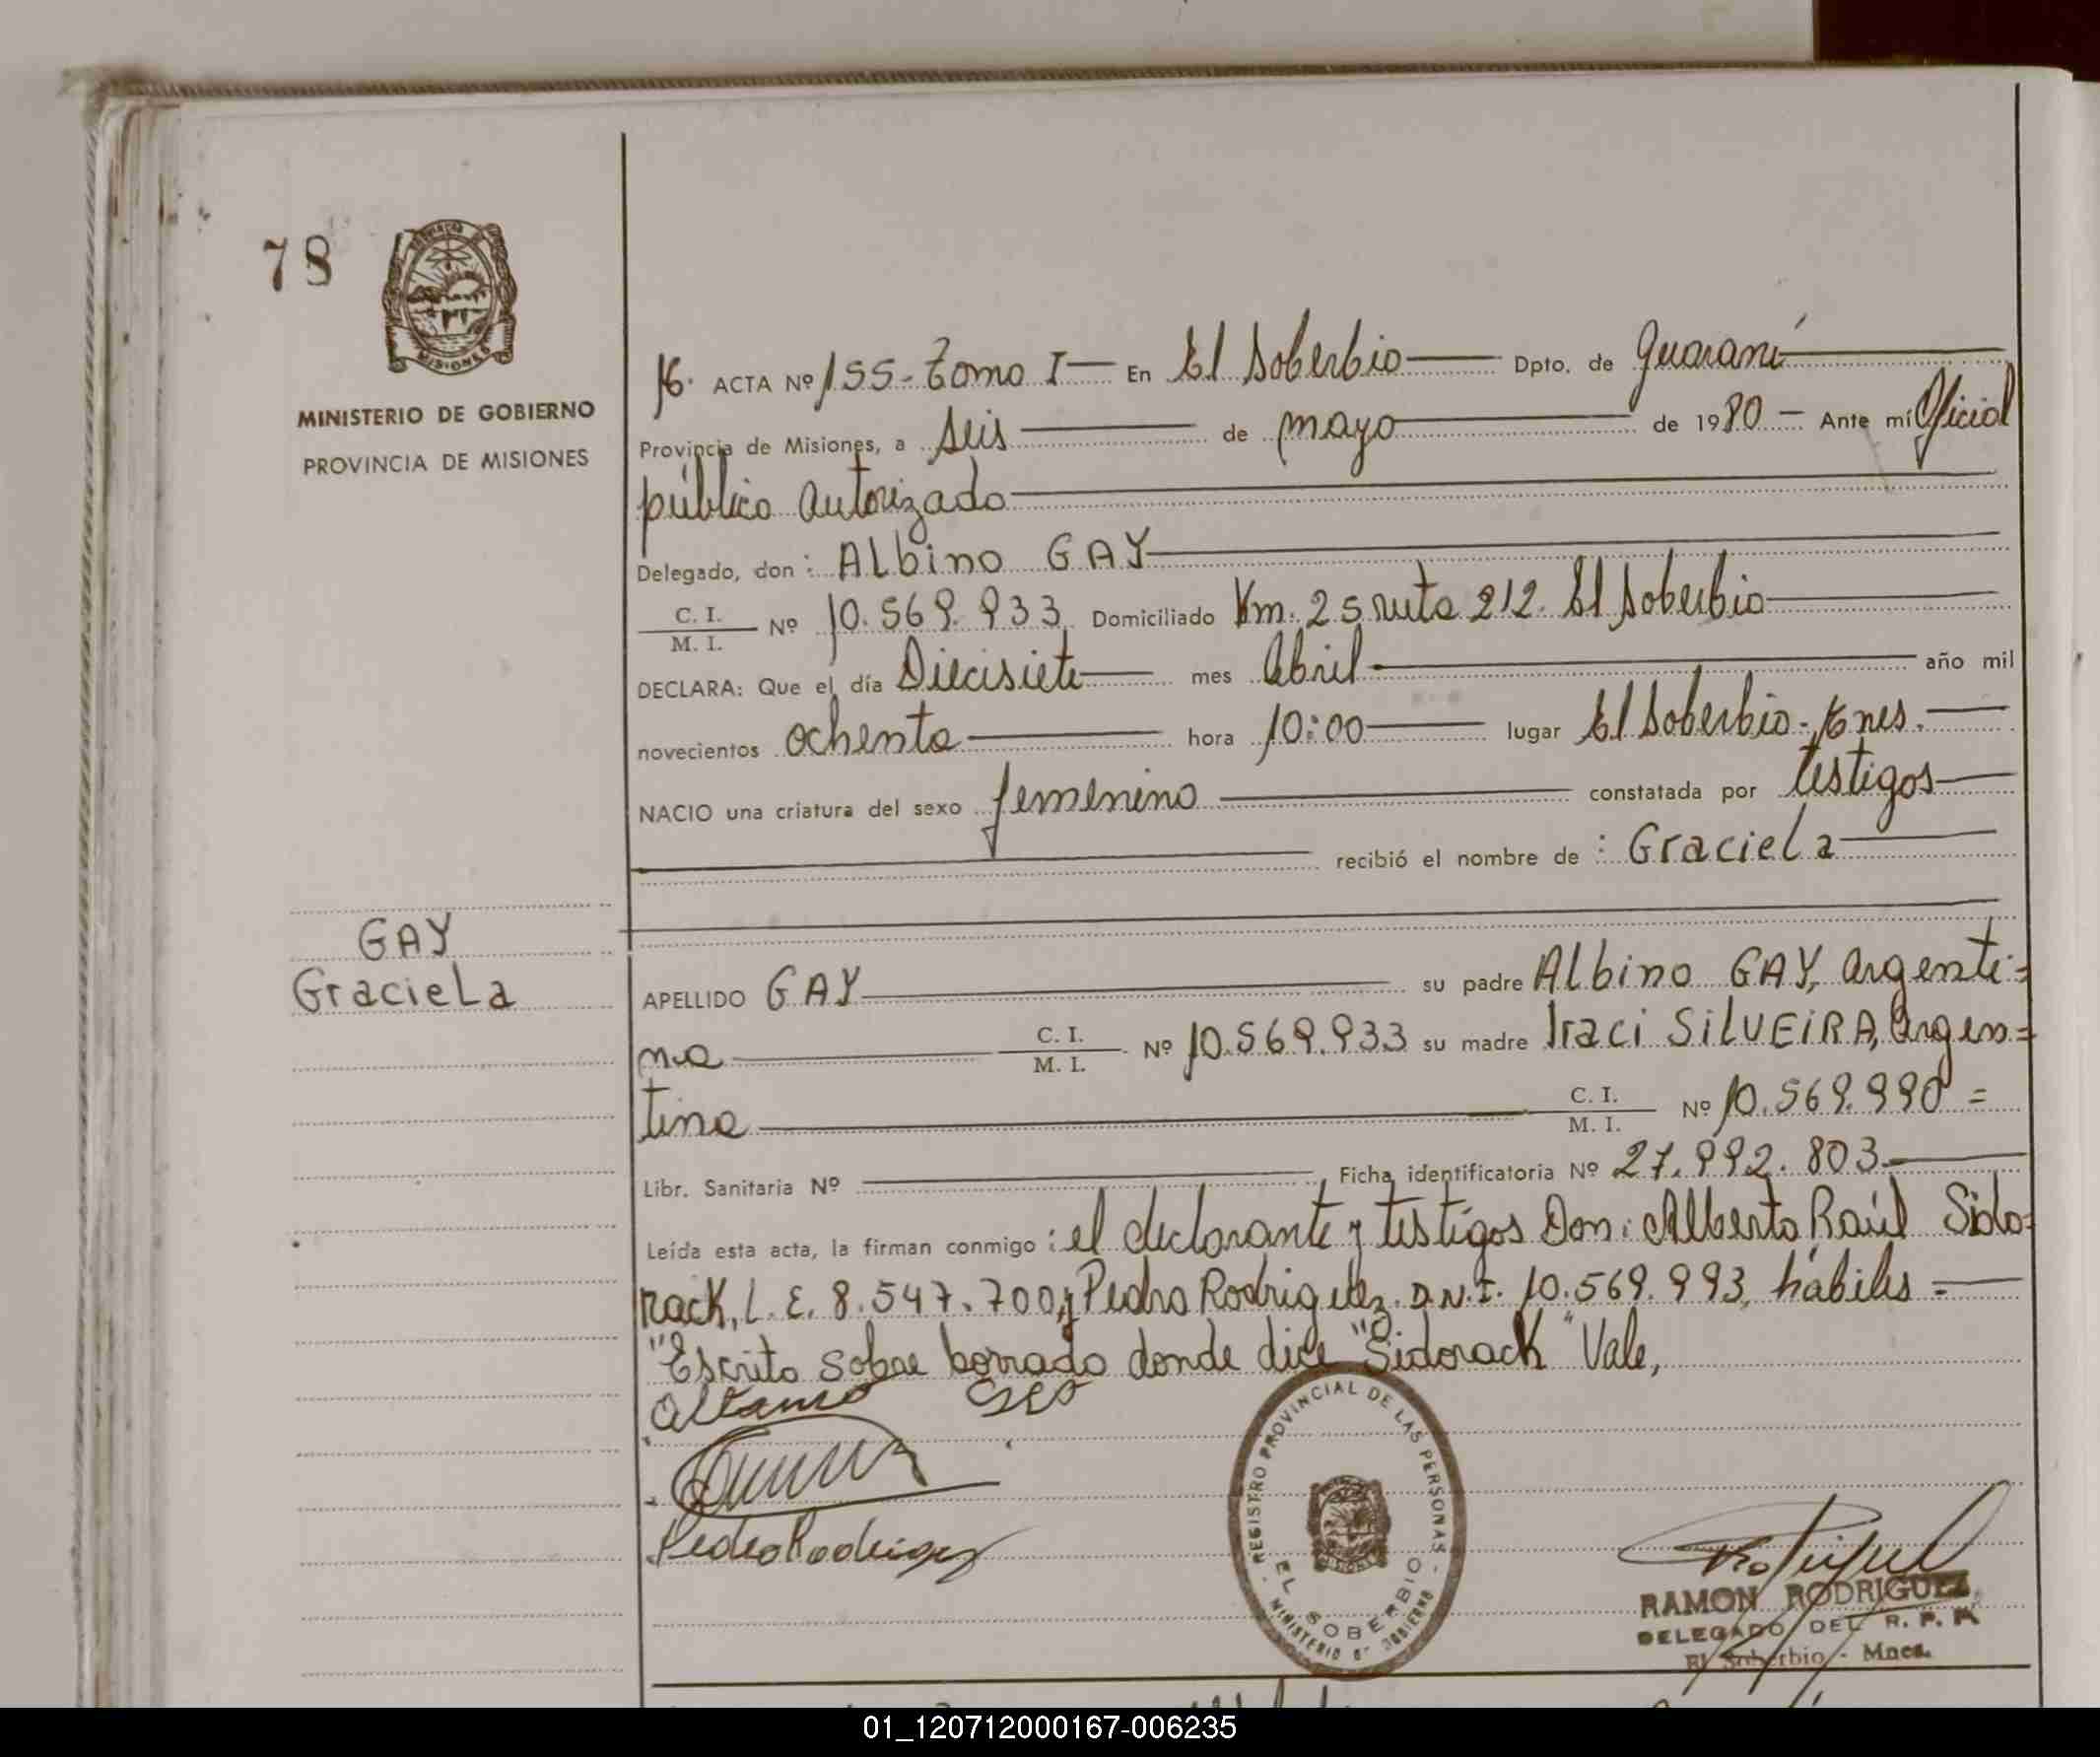 78
MISIONES
MINISTERIO DE GOBIERNO
PROVINCIA DE MISIONES
ACTA Nº 155- Tomo I — En El Soberbio — Dpto. de Guaraní
Provincia de Misiones, a seis — de mayo — de 1980 — Ante mí Oficial
público autorizado
Delegado, don: Albino GAY
C. I. / M. I. Nº 10.569.933 Domiciliado Km. 25 ruta 212. El Soberbio
DECLARA: Que el día Diecisiete — mes Abril — año mil
novecientos ochenta — hora 10:00 — lugar El Soberbio-
NACIO una criatura del sexo femenino — constatada por testigos
recibió el nombre de: Graciela
GAY
Graciela
APELLIDO GAY — su padre Albino GAY, argenti=
no — C. I. / M. I. Nº 10.569.933 su madre Iraci SILVEIRA, argen=
tina — C. I. / M. I. Nº 10.569.990 =
Libr. Sanitaria Nº — Ficha identificatoria Nº 27.992.803
Leída esta acta, la firman conmigo: el declarante y testigos Don: Alberto Raúl Sido=
rack, L.E. 8.547.700, y Pedro Rodriguez. D.N.I. 10.569.993, hábiles =
"Escrito sobre borrado donde dice "Sidorack" Vale,
Pedro Rodriguez
REGISTRO PROVINCIAL DE LAS PERSONAS
EL SOBERBIO
MINISTERIO DE GOBIERNO
RAMON RODRIGUEZ
DELEGADO DEL R. P. P.
El Soberbio - Mnes.
01_120712000167-006235